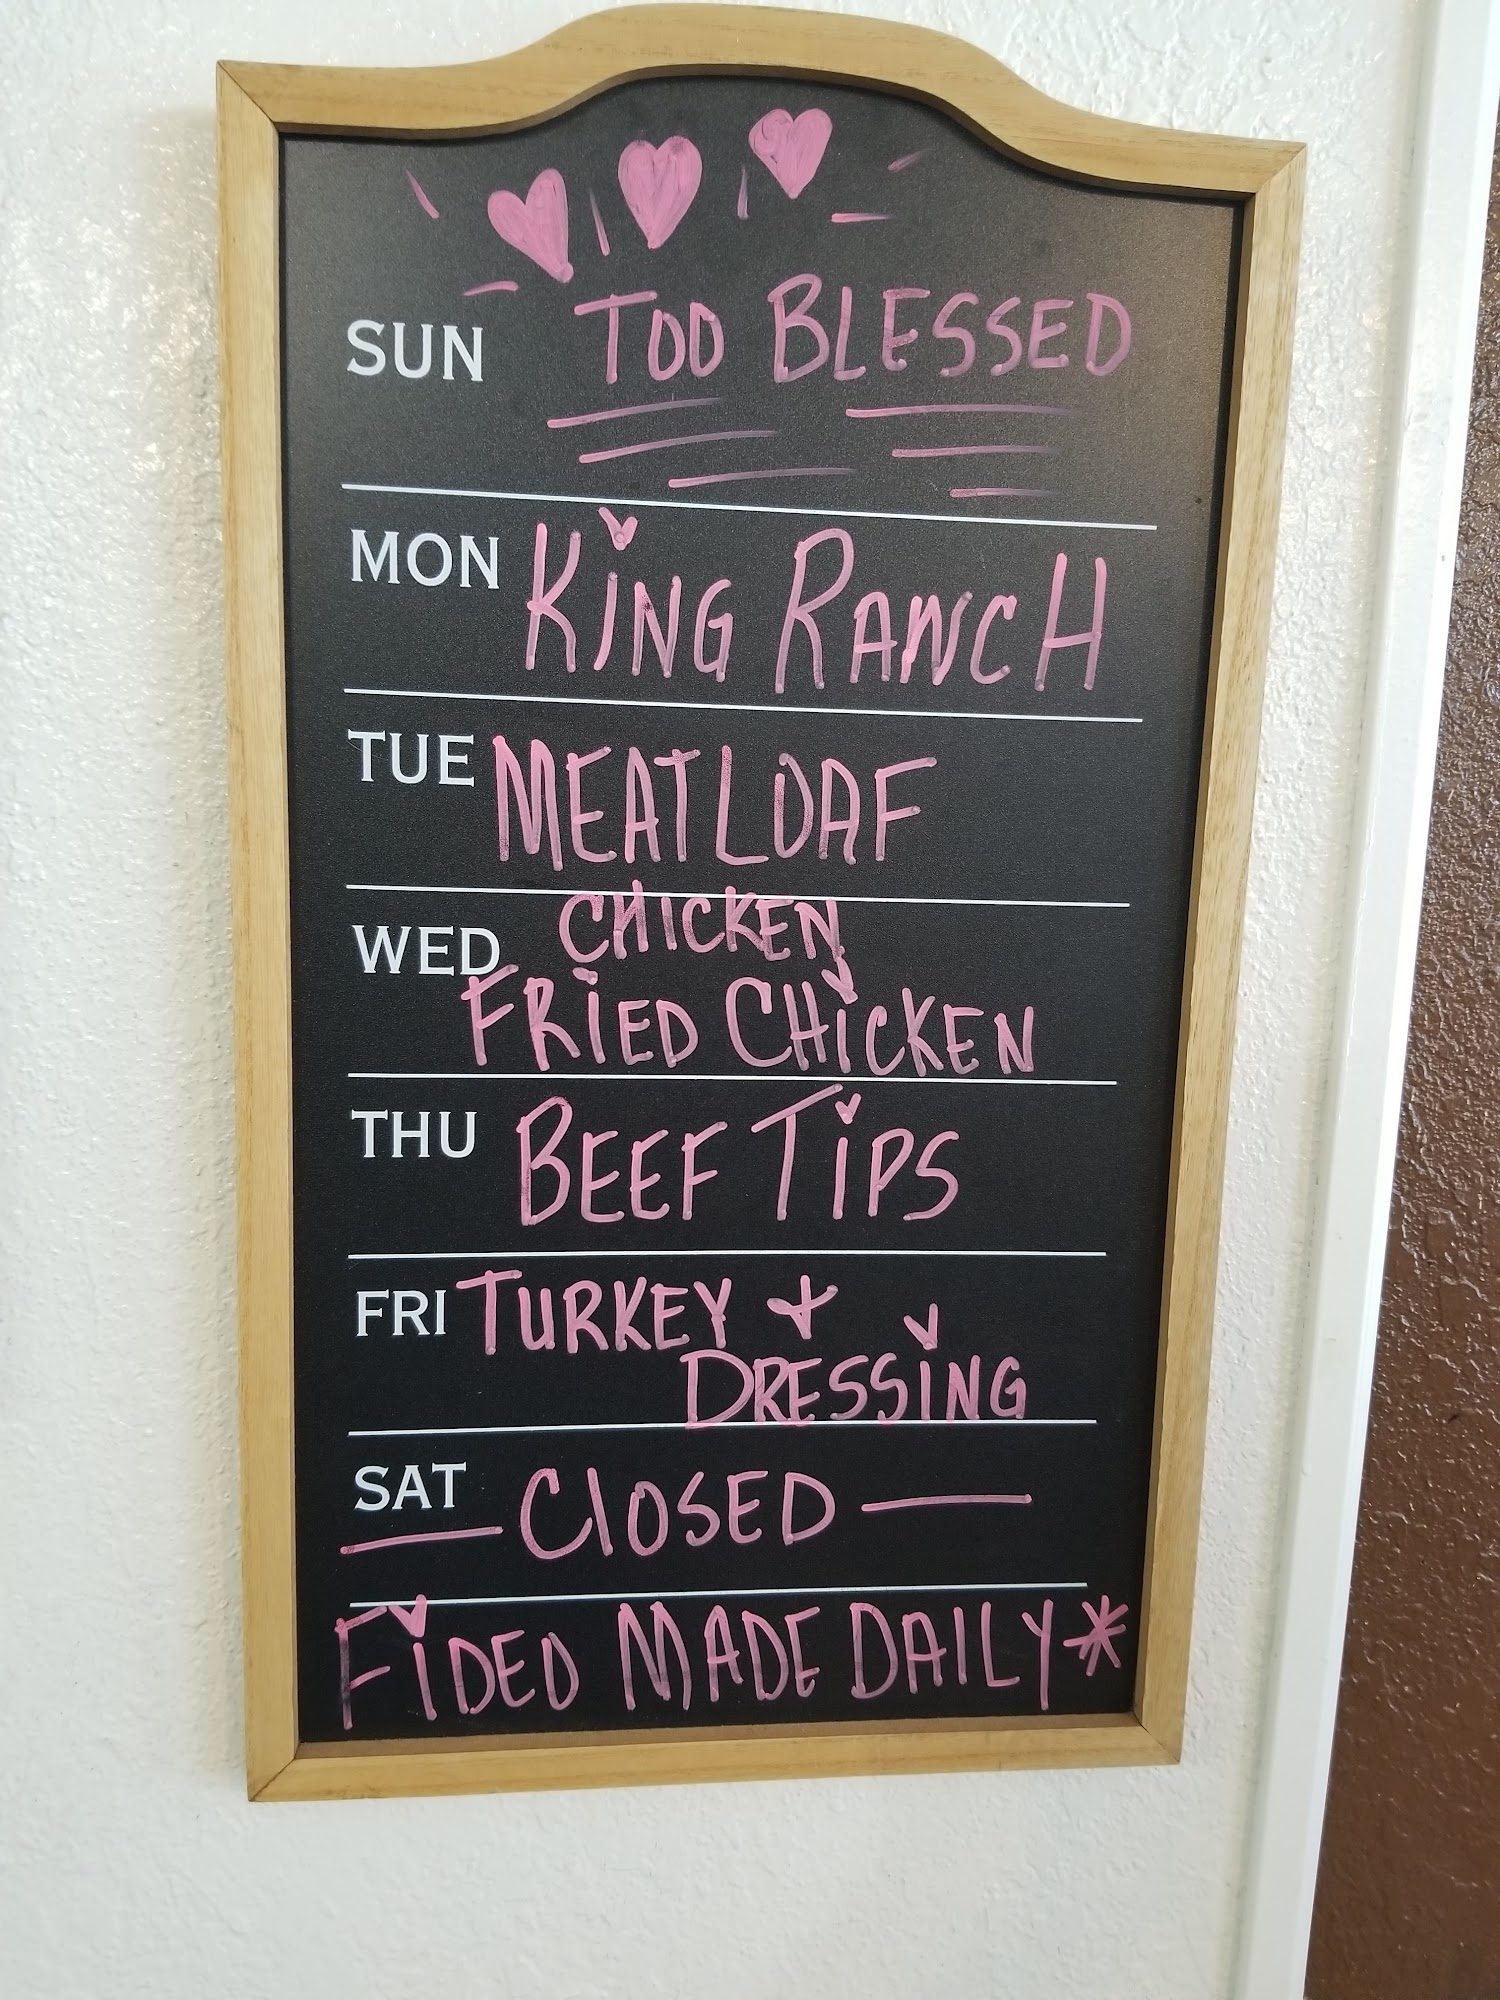 SUN TOO BLESSED
MON KiNG RANCH
TUE MEATLOAF
WED CHICKEN
FRiED CHiCKEN
THU BEEF TiPS
FRI TURKEY +
DRESSiNG
SAT ClOSED —
FiDEO MADE DAILY*